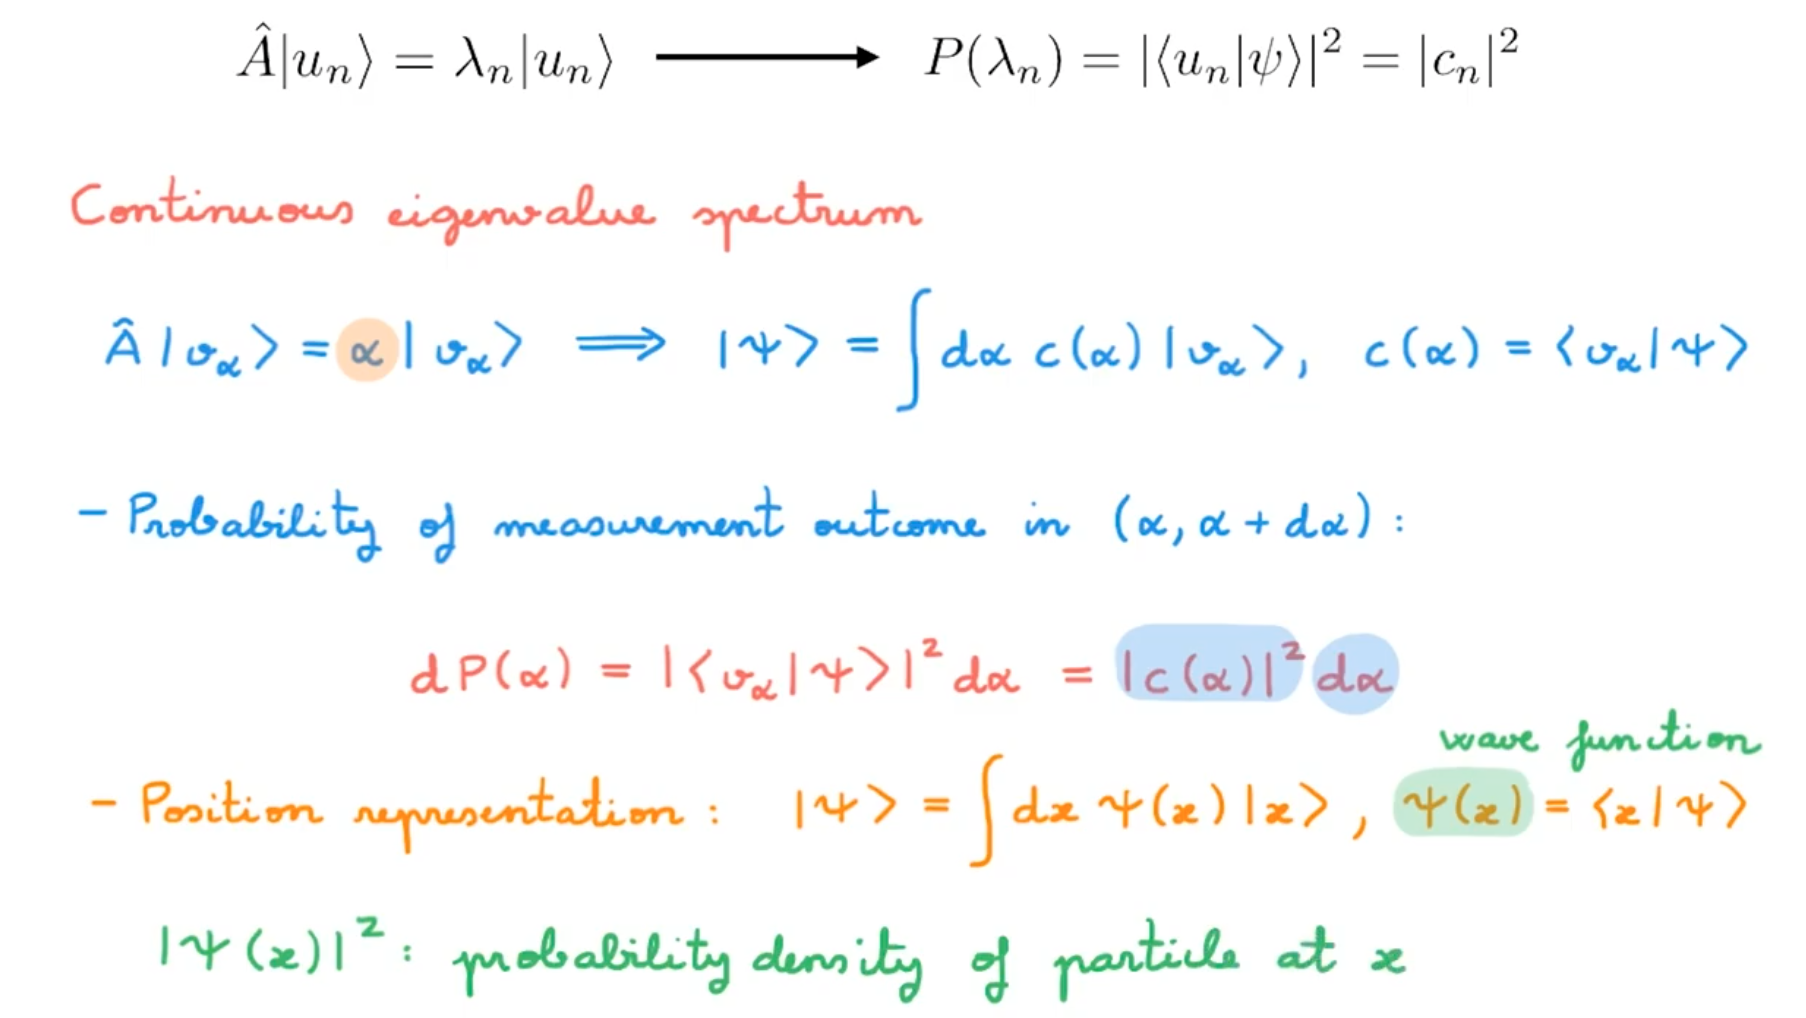 Â|uₙ⟩ = λₙ|uₙ⟩ ⟶ P(λₙ) = |⟨uₙ|ψ⟩|² = |cₙ|²
Continuous eigenvalue spectrum
Â|v_α⟩ = α|v_α⟩ ⟹ |ψ⟩ = ∫dα c(α)|v_α⟩, c(α) = ⟨v_α|ψ⟩
- Probability of measurement outcome in (α, α + dα):
dP(α) = |⟨v_α|ψ⟩|² dα = |c(α)|² dα
wave function
- Position representation: |ψ⟩ = ∫dx ψ(x)|x⟩, ψ(x) = ⟨x|ψ⟩
|ψ(x)|²: probability density of particle at x